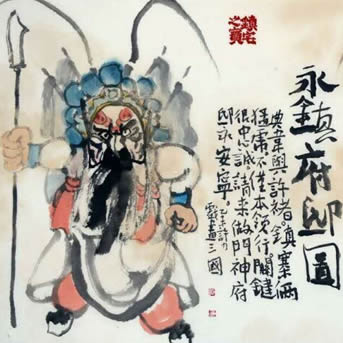 永鎮府邸圖
典韋與許褚鎮寨兩
猛虎不僅本領行關鍵
很中心誠請來做門神府
邸永安寧
戲畫三國
鎮宅之寶